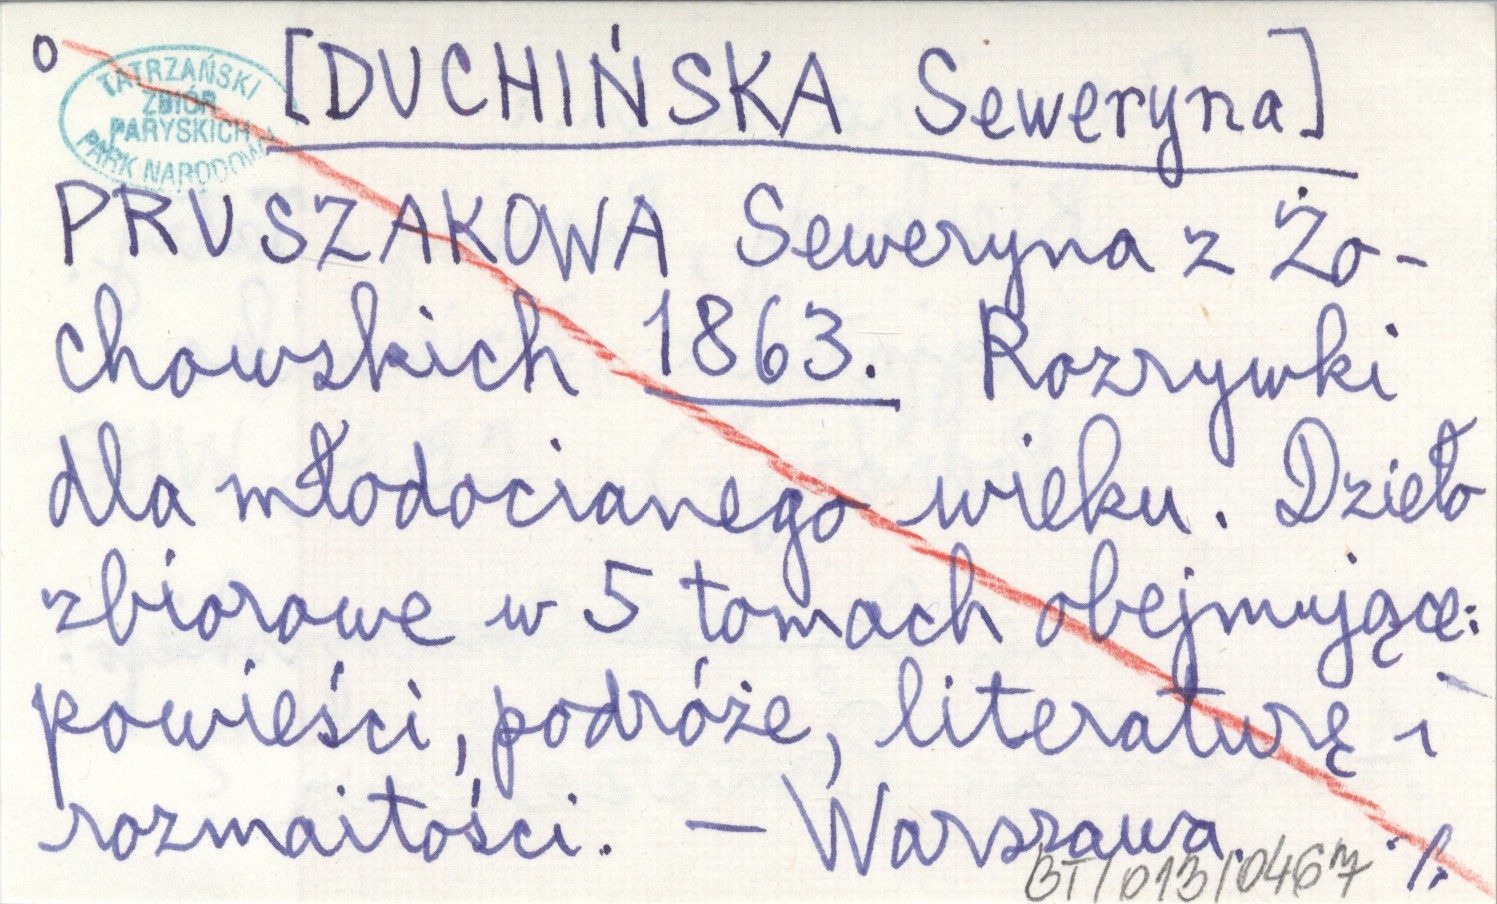 o
TATRZAŃSKI
ZBIÓR
PARYSKICH
PARK NARODOWY
[DUCHIŃSKA Seweryna]
PRUSZAKOWA Seweryna z Żo-
chowskich 1863. Rozrywki
dla młodocianego wieku. Dzieło
zbiorowe w 5 tomach obejmujące:
powieści, podróże, literaturę i
rozmaitości. — Warszawa.
BT/013/0467
./.